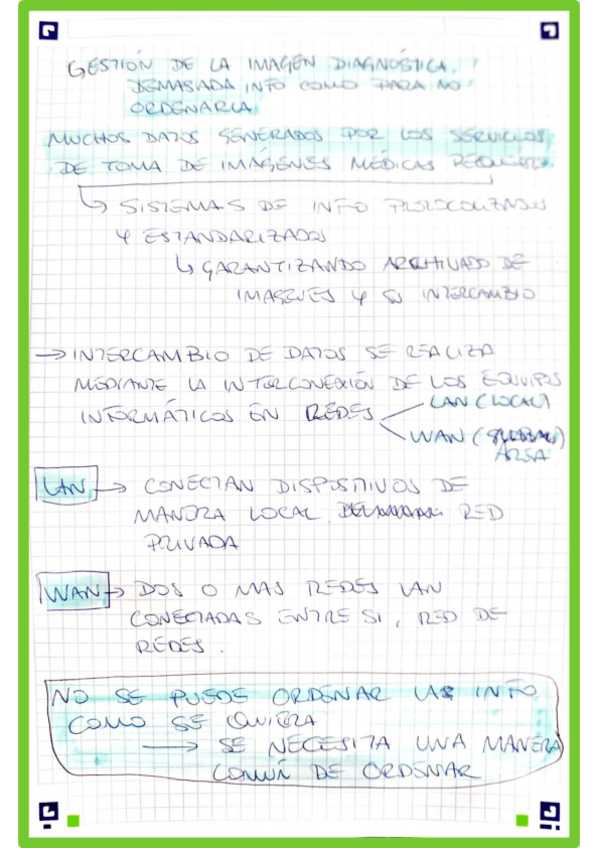 GESTIÓN DE LA IMAGEN DIAGNÓSTICA.
DEMASIADA INFO COMO PARA NO
ORDENARLA
MUCHOS DATOS GENERADOS POR LOS SERVICIOS
DE TOMA DE IMÁGENES MÉDICAS
↳ SISTEMAS DE INFO PROTOCOLIZADOS
Y ESTANDARIZADOS
↳ GARANTIZANDO ARCHIVADO DE
IMAGENES Y SU INTERCAMBIO
→ INTERCAMBIO DE DATOS SE REALIZA
MEDIANTE LA INTERCONEXIÓN DE LOS EQUIPOS
INFORMÁTICOS EN REDES
LAN (LOCAL)
WAN (GLOBAL)
LAN → CONECTAN DISPOSITIVOS DE
MANERA LOCAL. RED
PRIVADA
WAN → DOS O MAS REDES LAN
CONECTADAS ENTRE SI, RED DE
REDES.
NO SE PUEDE ORDENAR LA INFO
COMO SE QUIERA
→ SE NECESITA UNA MANERA
COMÚN DE ORDENAR